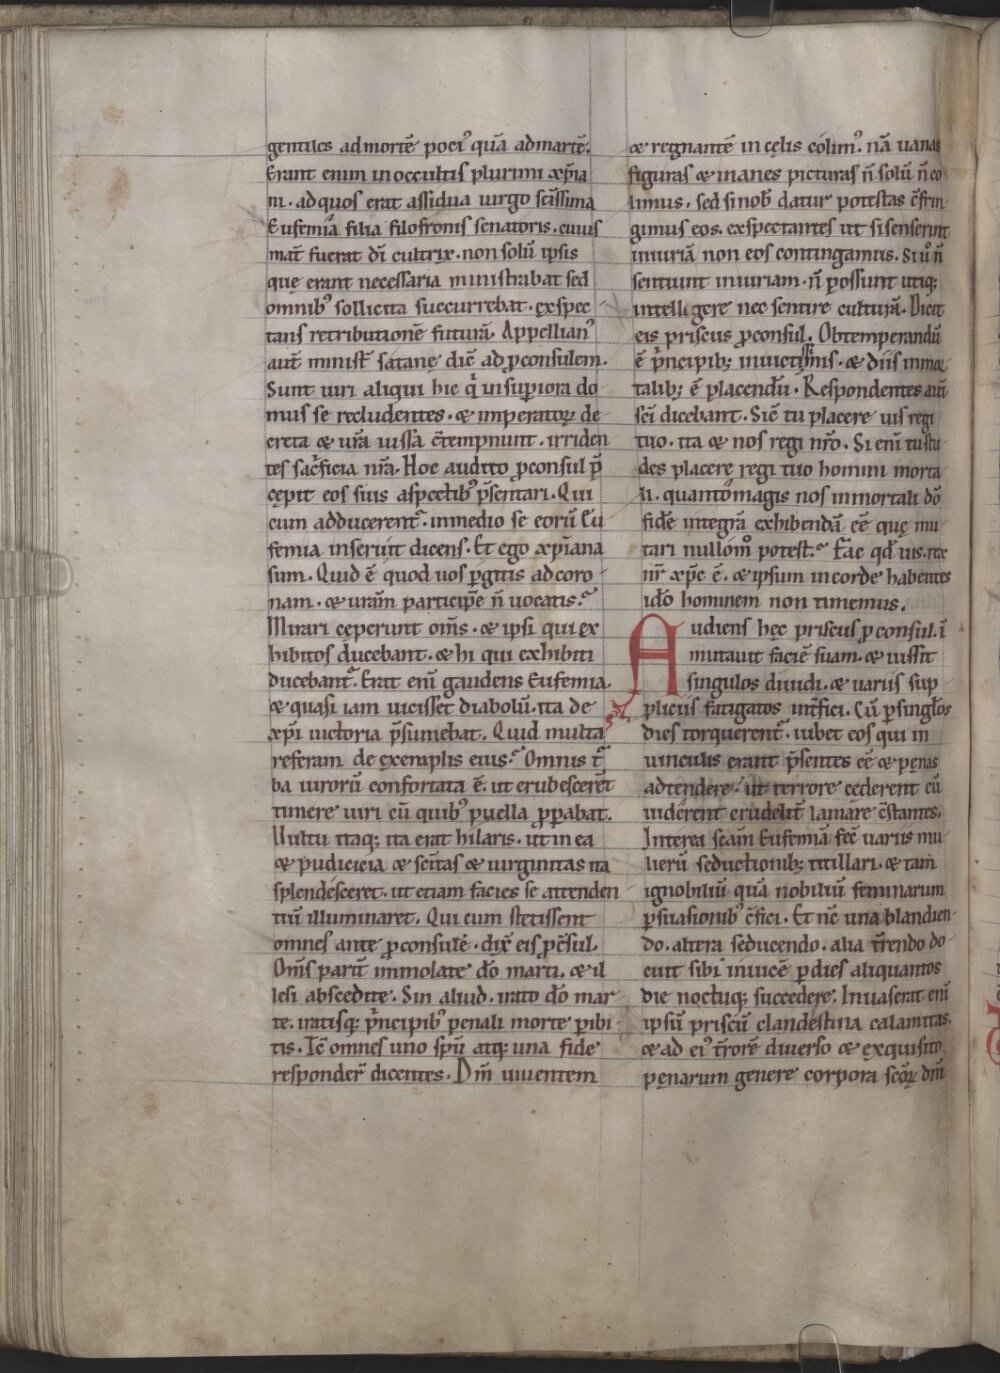 gentiles ad mortē poti᷒ quā ad martē.
Erant enim in occultis plurimi xp̄ia
ni. ad quos erat assidua uirgo sc̄issima
Eufemia filia filofronis senatoris. cuius
mat̄ fuerat dī cultrix. non solū ipsis
que erant necessaria ministrabat sed
omnib᷒ sollicita succurrebat. exspec
tans retributionē futurā. Appellian᷒
aut̄ minist̄ satanę dic̄ ad ꝓconsulem.
Sunt uiri aliqui hic qͥ in supiora do
mus se recludentes. & imperatoꝝ de
creta & ur̄a iussa c̄tempnunt. irriden
tes sac̄ficia nr̄a. Hoc audito ꝓconsul p̄
cępit eos suis aspectib᷒ p̄sentari. Qui
cum adducerent᷑. in medio se eorū Eu
femia inseruit dicens. Et ego xp̄iana
sum. Quid ē quod uos pgitis ad coro
nam. & me uram participē n̄ uocatis.
Mirari cęperunt om̄s. & ipsi qui ex
hibitos ducebant. & hi qui exhibiti
ducebant᷑. Erat enī gaudens Eufemia.
& quasi iam uicisset diabolū. ita de
xp̄i uictoria p̄sumebat. Quid multa
referam de exemplis eius. Omnis t᷑
ba uirorū confortata ē. ut erubesceret̄
timere uiri cū quib᷒ puella ꝓpabat.
Uultu itaq; ita erat hilaris. ut in ea
& pudicicia & sc̄itas & uirginitas ita
splendesceret. ut etiam facies se attenden
tiū illuminaret. Qui cum stetissent
omnes ante ꝓconsulē. dix̄ eis ꝓc̄sul.
Om̄s parit̄ immolate dō marti. & il
lesi abscedite. Sin aliud. irato dō mar
te. iratisq; p̄ncipib᷒ penali morte pibi
tis. Tc̄ omnes uno sp̄u atq; una fide
responder̄ dicentes. Dm̄ uiuentem
& regnantē in cęlis colim᷒. nā uanas
figuras & inanes picturas n̄ solū n̄ co
limus. sed si nob̄ datur potestas c̄frin
gimus eos. exspectantes ut si senserint
iniuriā non eos contingamus. Si ů n̄
sentiunt iniuriam. n̄ possunt utiq;
intelligere nec sentire culturā. Dicit
eis priscus ꝓconsul. Obtemperandū
ē p̄ncipib; inuictissimis. & diis inmor
talib; ē placendū. Respondentes aut̄
sc̄i dicebant. Sic̄ tu placere uis regi
tuo. ita & nos regi nr̄o. Si enī tu stu
des placere regi tuo homini morta
li. quantomagis nos inmortali dō
fidē integrā exhibendā eē quę mu
tari nullom̊ potest. Fac qd̄ uis. rex
nr̄ xp̄c ē. & ipsum in corde habentes
idō hominem non timemus.
Audiens hęc priscus ꝓconsul. ī
mutauit faciē suam. & iussit
singulos diuidi. & uariis sup
pliciis fatigatos int̄fici. Cū p singlos
dies torquerent᷑. iubet eos qui in
uinculis erant p̄sentes eē & pęnas
adtendere. ut terrore cederent cū
uiderent crudelit̄ laniare c̄stantes.
Interea sc̄am Eufemiā fec̄ uariis mu
lierū seductionib; titillari. & tam̄
ignobiliū quā nobiliū feminarum
psuasionib᷒ c̄fici. Et nc̄ una blandien
do. altera seducendo. alia t̄rendo do
cuit sibi inuicē p dies aliquantos
die noctuq; succedere. Inuaserat enī
ipsū priscū clandestina calamitas.
& ad ei᷒ t̄rorē diuerso & exquisito
pęnarum genere corpora sc̄oꝝ dm̄